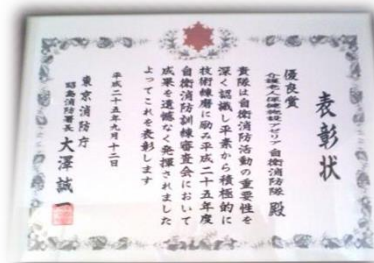 表彰状
優良賞
介護老人保健施設アゼリア自衛消防隊 殿
貴隊は自衛消防活動の重要性を
深く認識し平素から積極的に
技術練磨に励み平成二十五年度
自衛消防訓練審査会において
成果を遺憾なく発揮されました
よってこれを表彰します
平成二十五年九月十二日
東京消防庁
昭島消防署長 大澤誠一